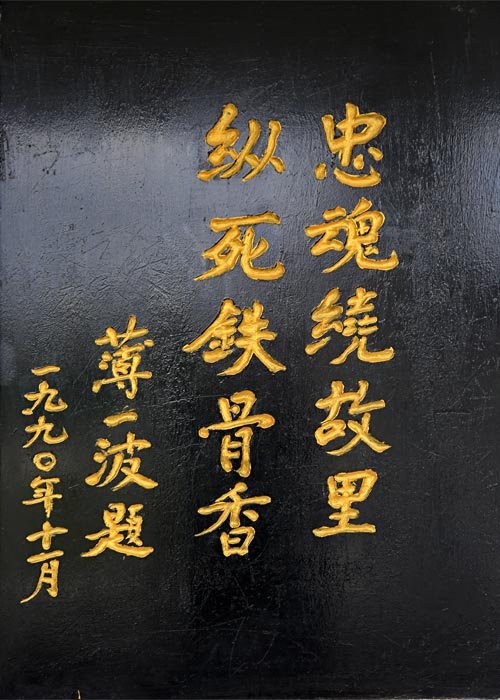 忠魂繞故里
纵死鉄骨香
薄一波題
一九九〇年十一月